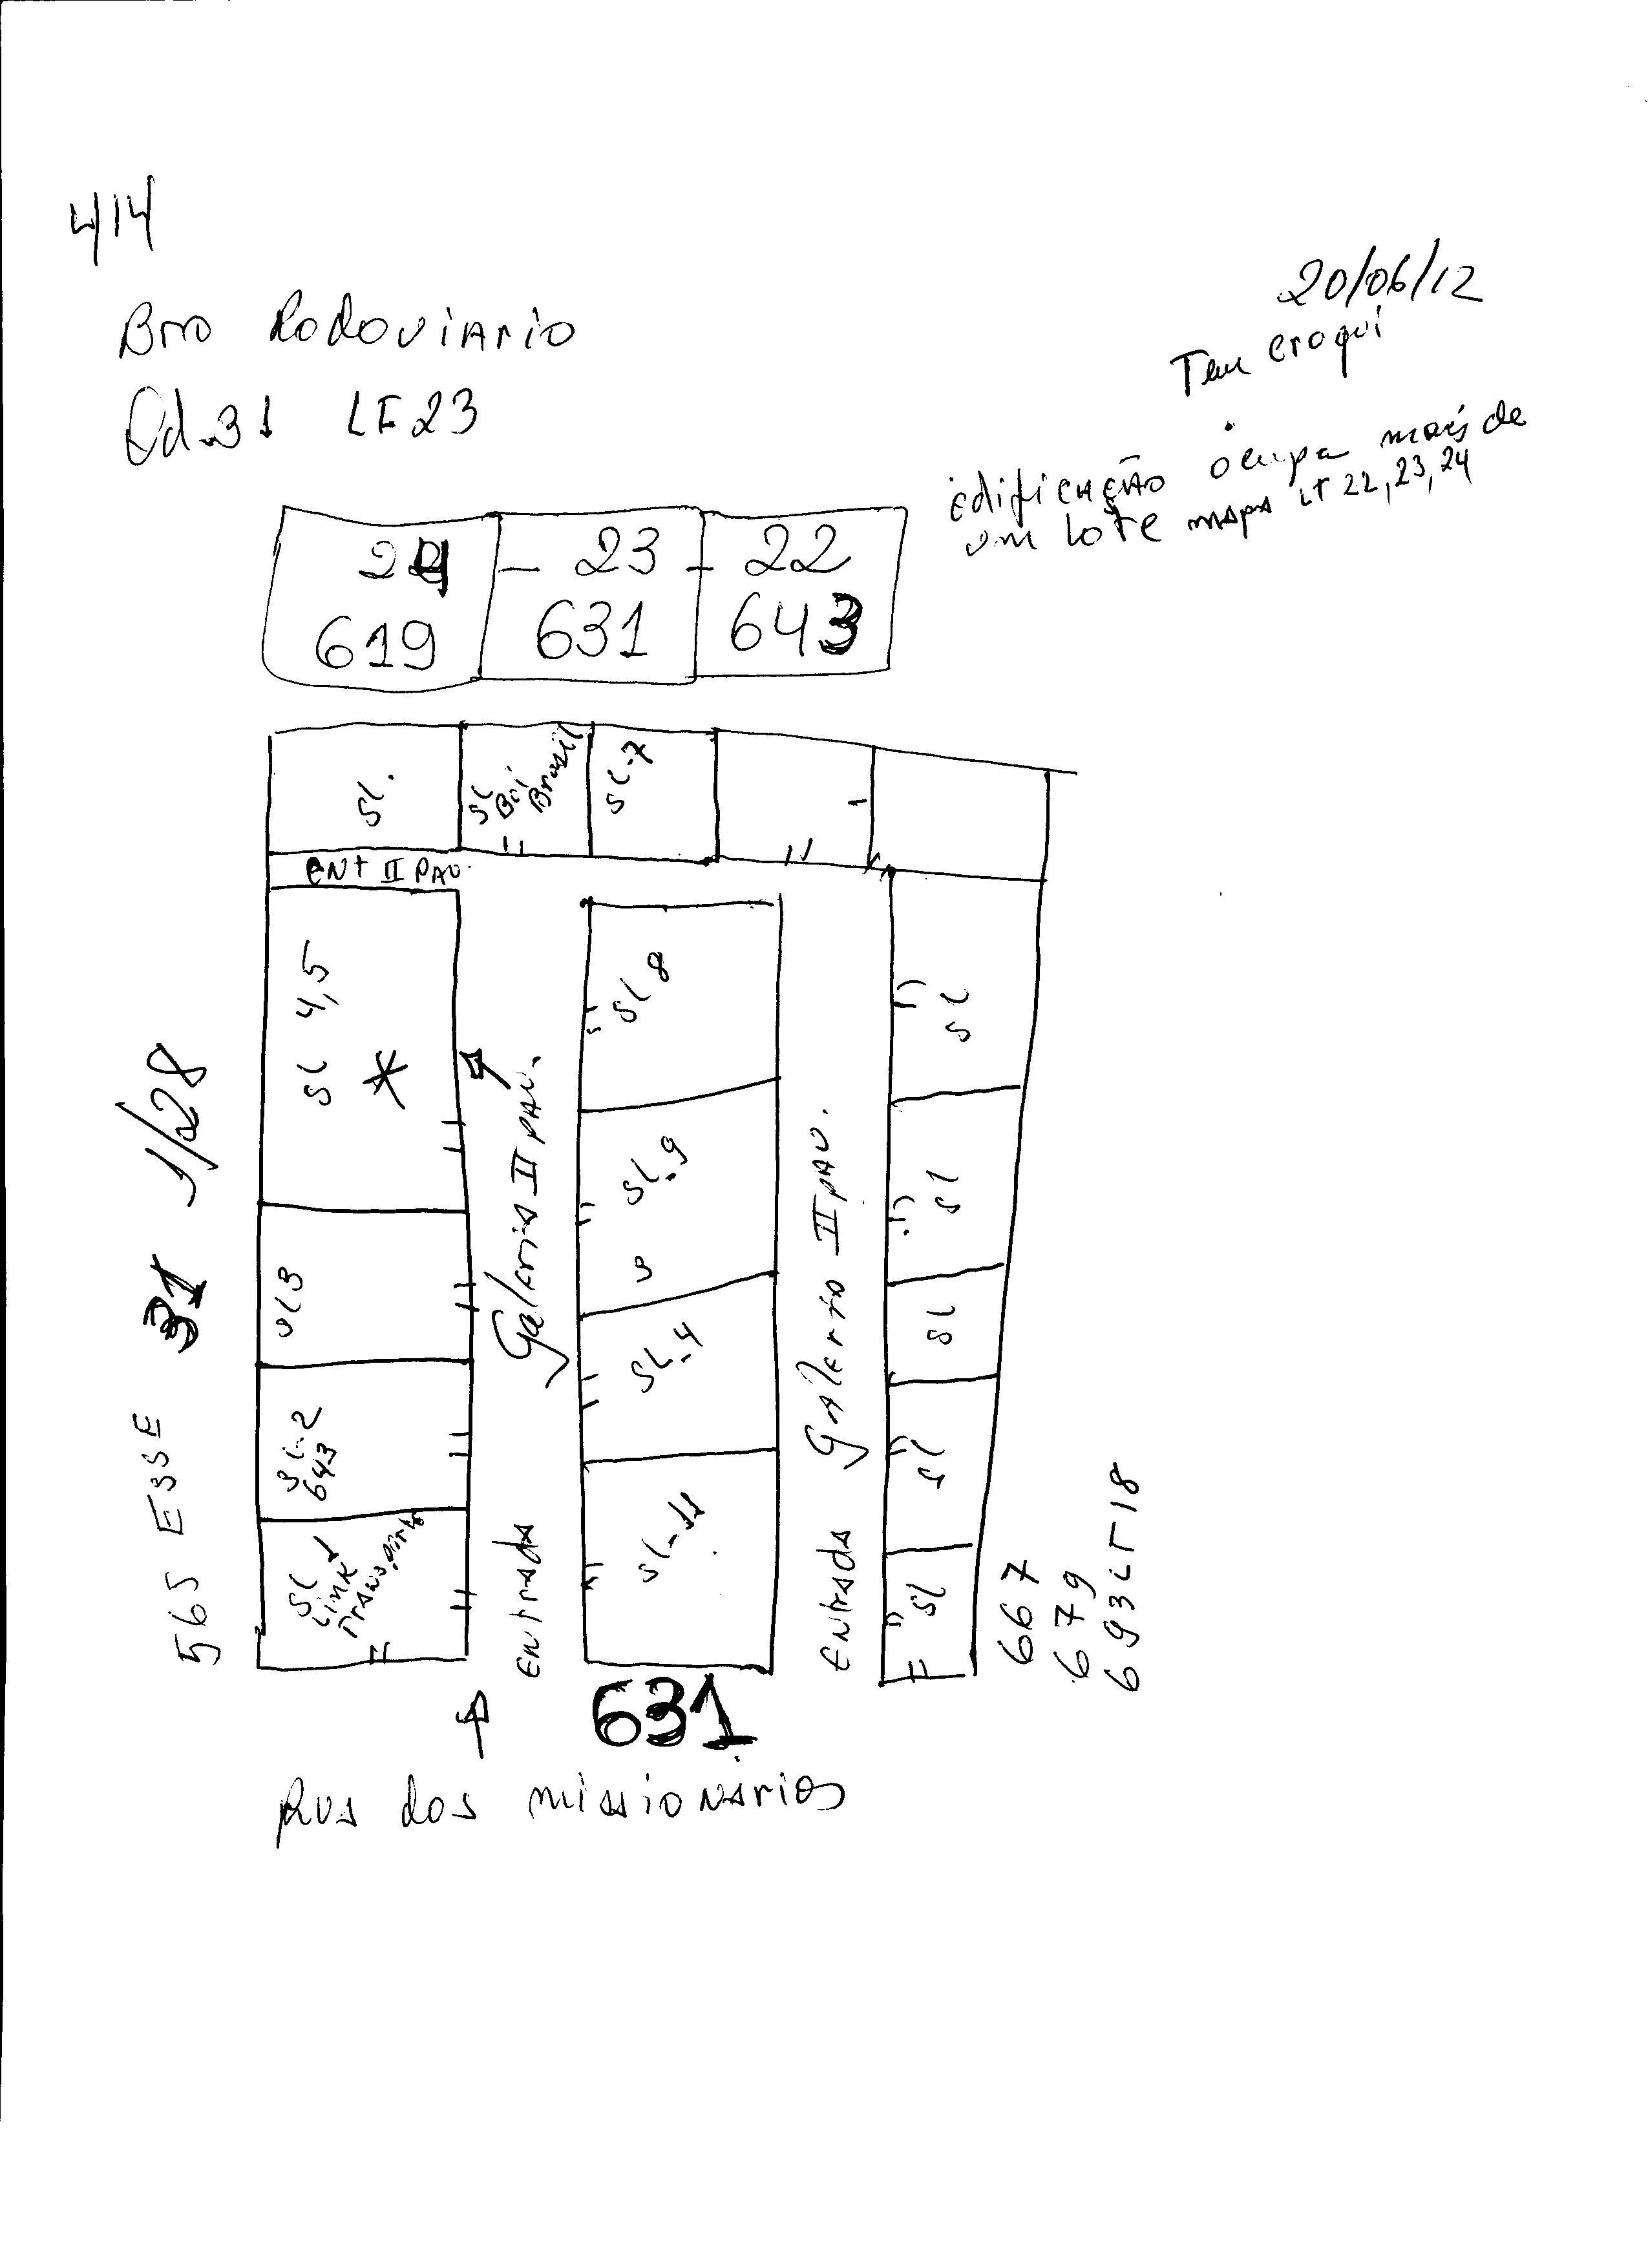 414
20/06/12
Bro Rodoviario
Tem croqui
Qd-31 LT 23
edificação ocupa mais de
um lote mapa LT 22, 23, 24
24 - 23 - 22
619 631 643
SL.
SL Boi Brasil
SL-7
ENT II PAV.
SL 4,5
*
SL 3
SL-2
643
SL
LINK
Galeria II PAV.
Entrada
SL 8
SL-9
SL-4
SL-11
Galeria II PAV.
Entrada
SL
SL
SL
SL
SL
565 ESSE 31 1/28
667
679
693 LT 18
631
Rua dos missionários